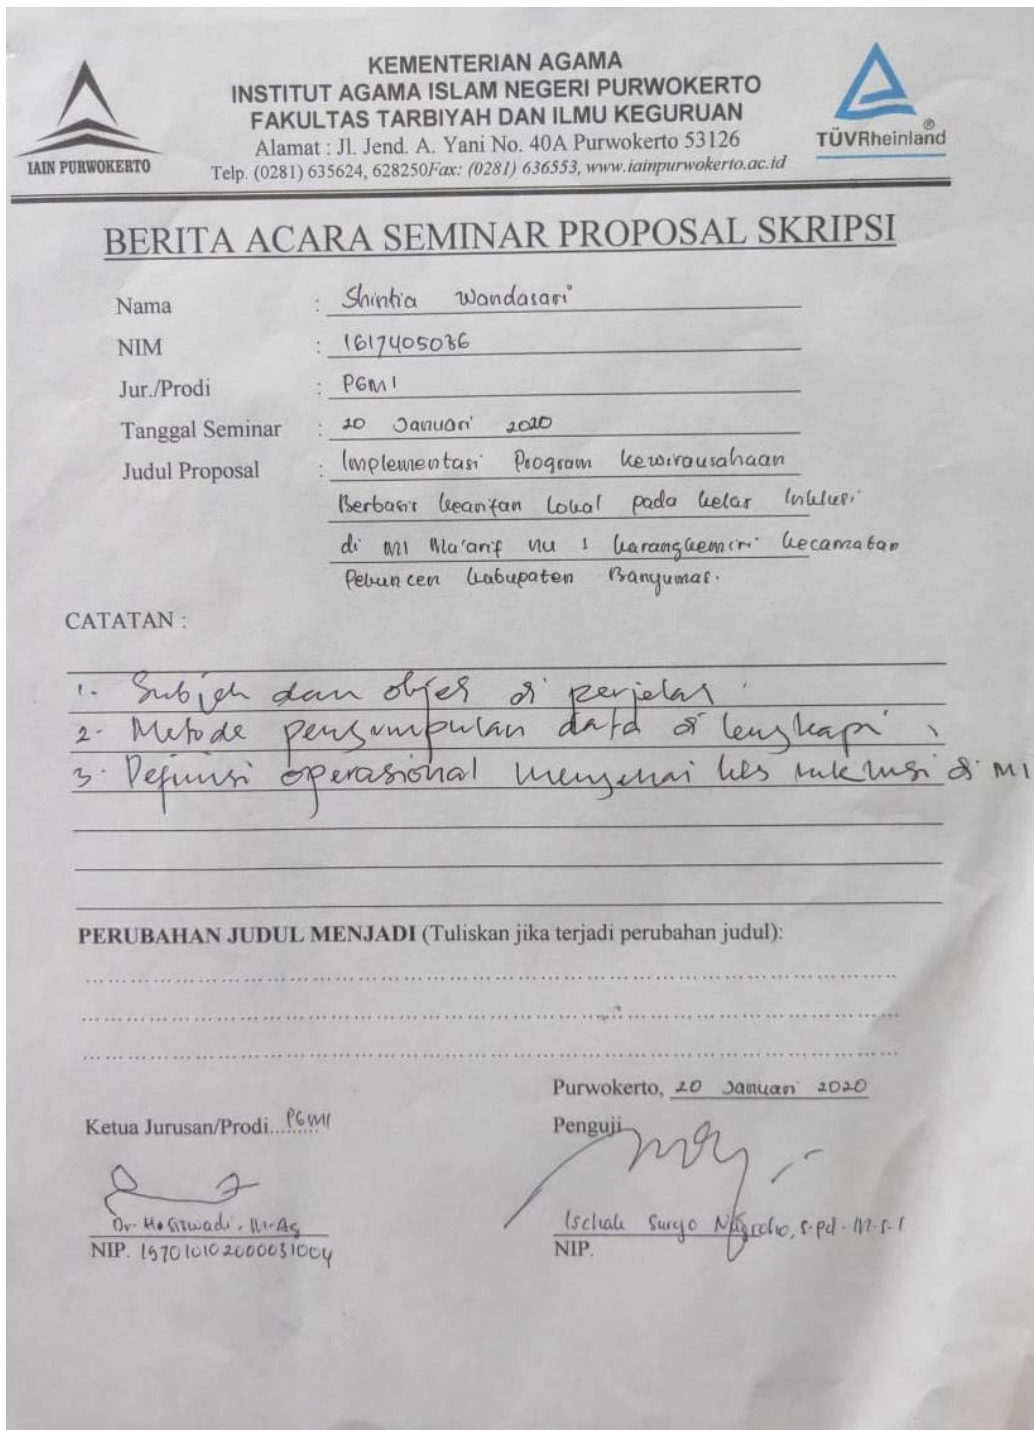 KEMENTERIAN AGAMA
INSTITUT AGAMA ISLAM NEGERI PURWOKERTO
FAKULTAS TARBIYAH DAN ILMU KEGURUAN
Alamat : Jl. Jend. A. Yani No. 40A Purwokerto 53126
Telp. (0281) 635624, 628250Fax: (0281) 636553, www.iainpurwokerto.ac.id
IAIN PURWOKERTO
TÜVRheinland®
BERITA ACARA SEMINAR PROPOSAL SKRIPSI
Nama : Shintia Wandasari
NIM : 1617405036
Jur./Prodi : PGMI
Tanggal Seminar : 20 Januari 2020
Judul Proposal : Implementasi Program kewirausahaan
Berbasis kearifan Lokal pada kelas Inklusi
di MI Ma'arif NU 1 karangkemiri kecamatan
Pekuncen kabupaten Banyumas.
CATATAN :
1. Subjek dan objek di perjelas
2. Metode pengumpulan data di lengkapi
3. Definisi operasional mengenai kls inklusi di MI
PERUBAHAN JUDUL MENJADI (Tuliskan jika terjadi perubahan judul):
Purwokerto, 20 Januari 2020
Ketua Jurusan/Prodi...PGMI
Penguji
Dr. H. Siswadi, M.Ag
NIP. 197010102000031004
Ischak Suryo Nugroho, S.Pd.I M.S.I
NIP.